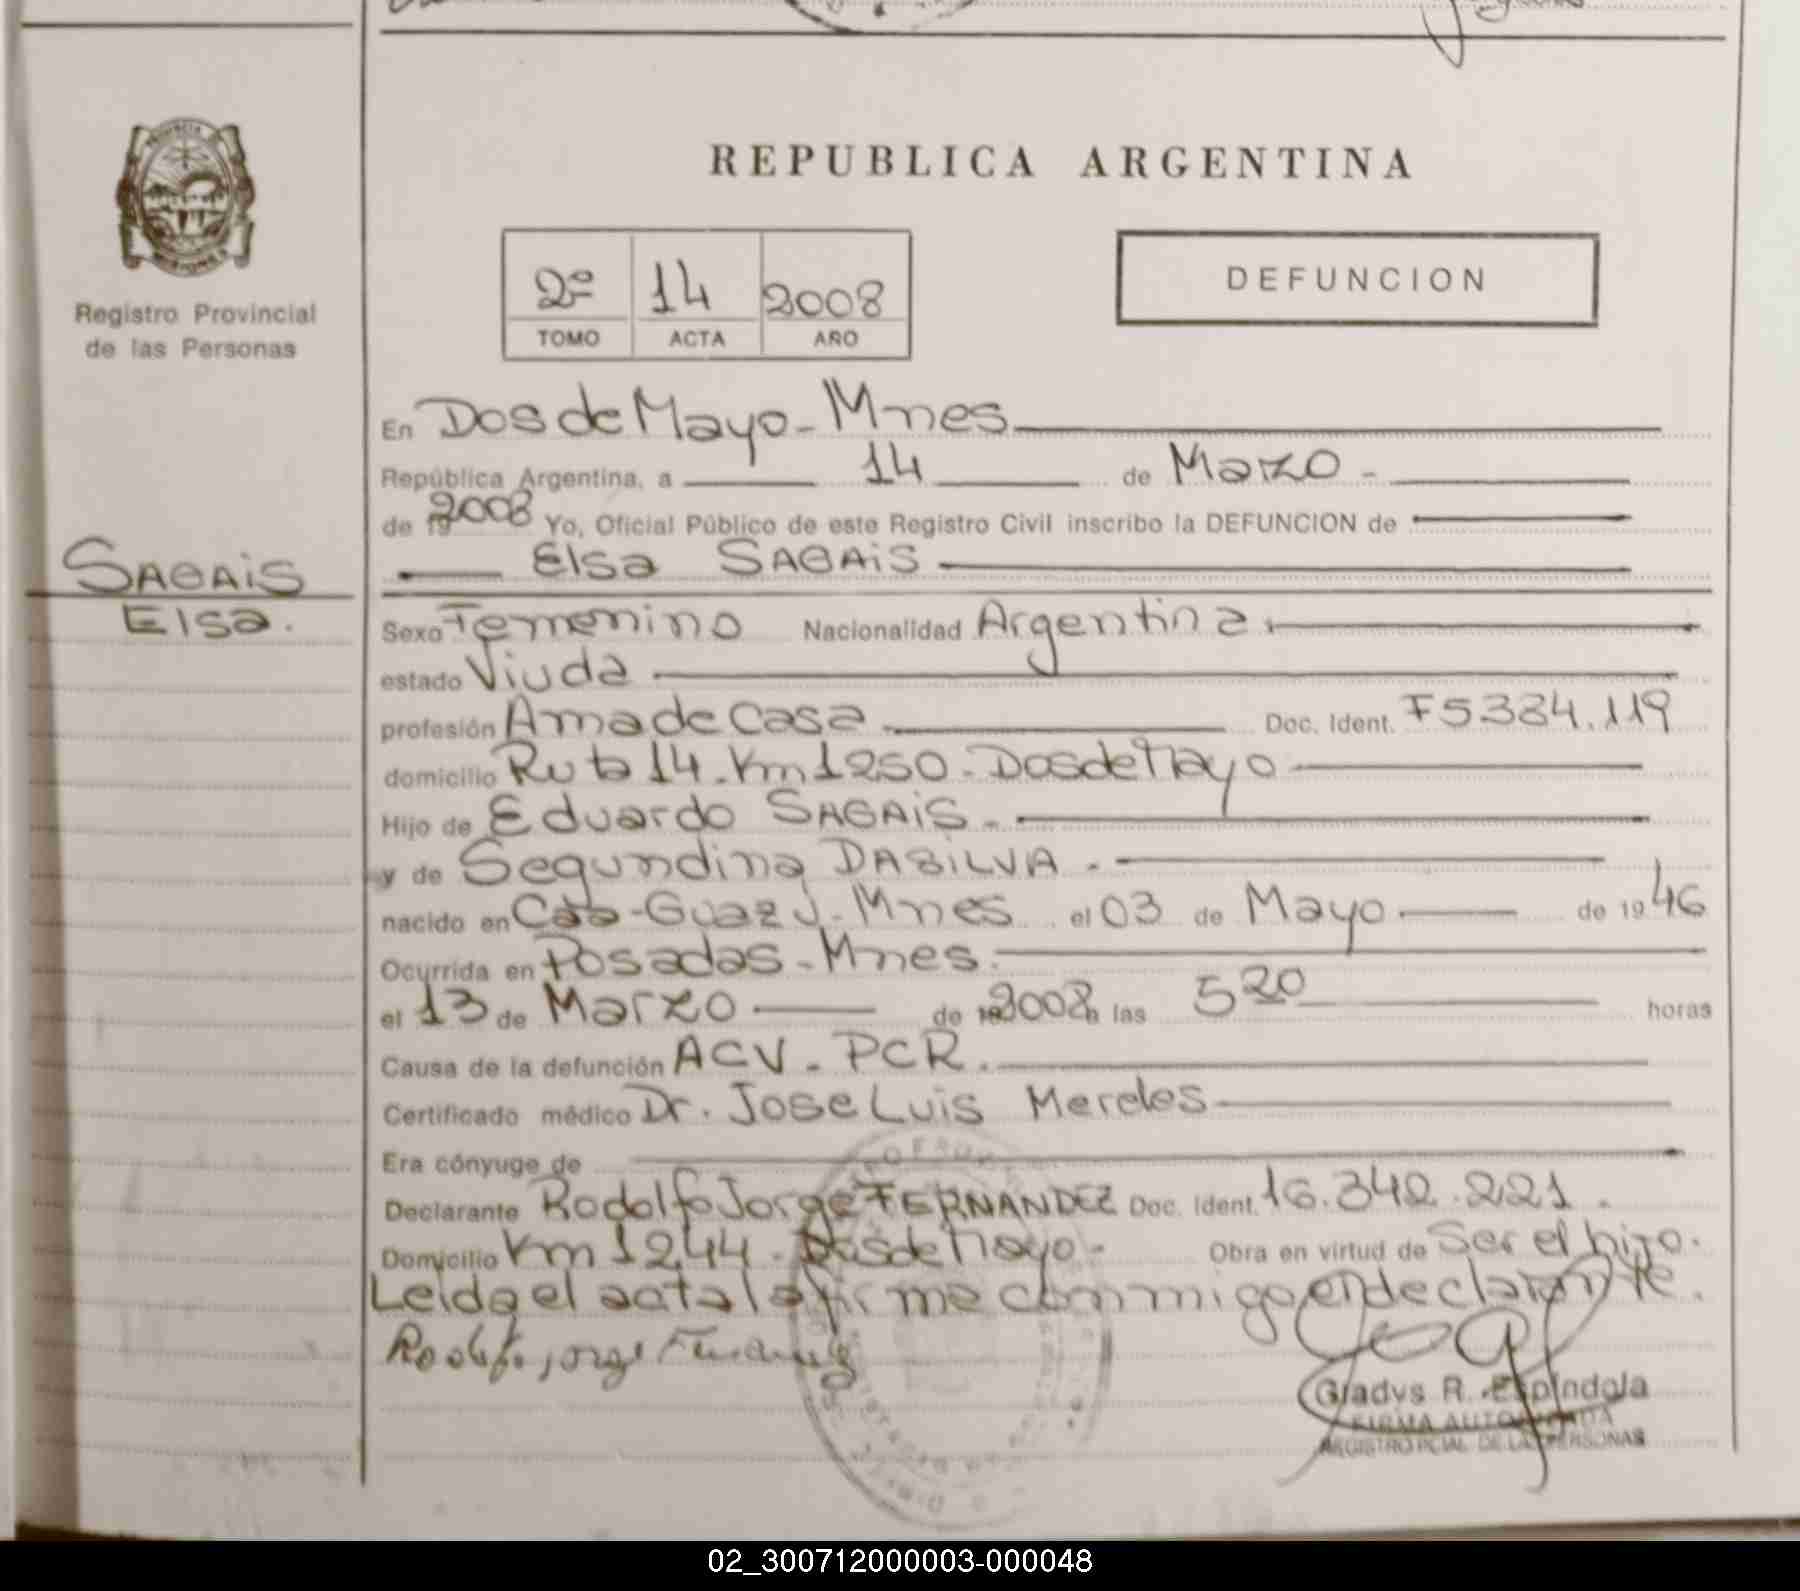 REPUBLICA ARGENTINA
Registro Provincial
de las Personas
2º 14 2008
TOMO ACTA AÑO
DEFUNCION
En Dos de Mayo - Mnes
República Argentina, a 14 de Marzo -
de 19 2008 Yo, Oficial Público de este Registro Civil inscribo la DEFUNCION de
Elsa SAGAiS
SAGAiS
Elsa.
Sexo Femenino Nacionalidad Argentina.
estado Viuda
profesión Ama de Casa Doc. Ident. F5334.119
domicilio Ruta 14 - Km 1250 - Dos de Mayo
Hijo de Eduardo SAGAiS -
y de Segundina DASILVA -
nacido en Caa-Guazú - Mnes el 03 de Mayo de 19 46
Ocurrida en Posadas - Mnes.
el 13 de Marzo de 2008 a las 5 20 horas
Causa de la defunción ACV - PCR.
Certificado médico Dr. Jose Luis Mereles
Era cónyuge de
Declarante Rodolfo Jorge FERNANDEZ Doc. Ident. 16.342.221.
Domicilio Km 1244 - Dos de Mayo - Obra en virtud de Ser el hijo.
Leida el acta la firma conmigo el declarante.
Rodolfo Jorge Fernandez
Gladys R. Espíndola
FIRMA AUTORIZADA
REGISTRO PCIAL. DE LAS PERSONAS
02_300712000003-000048